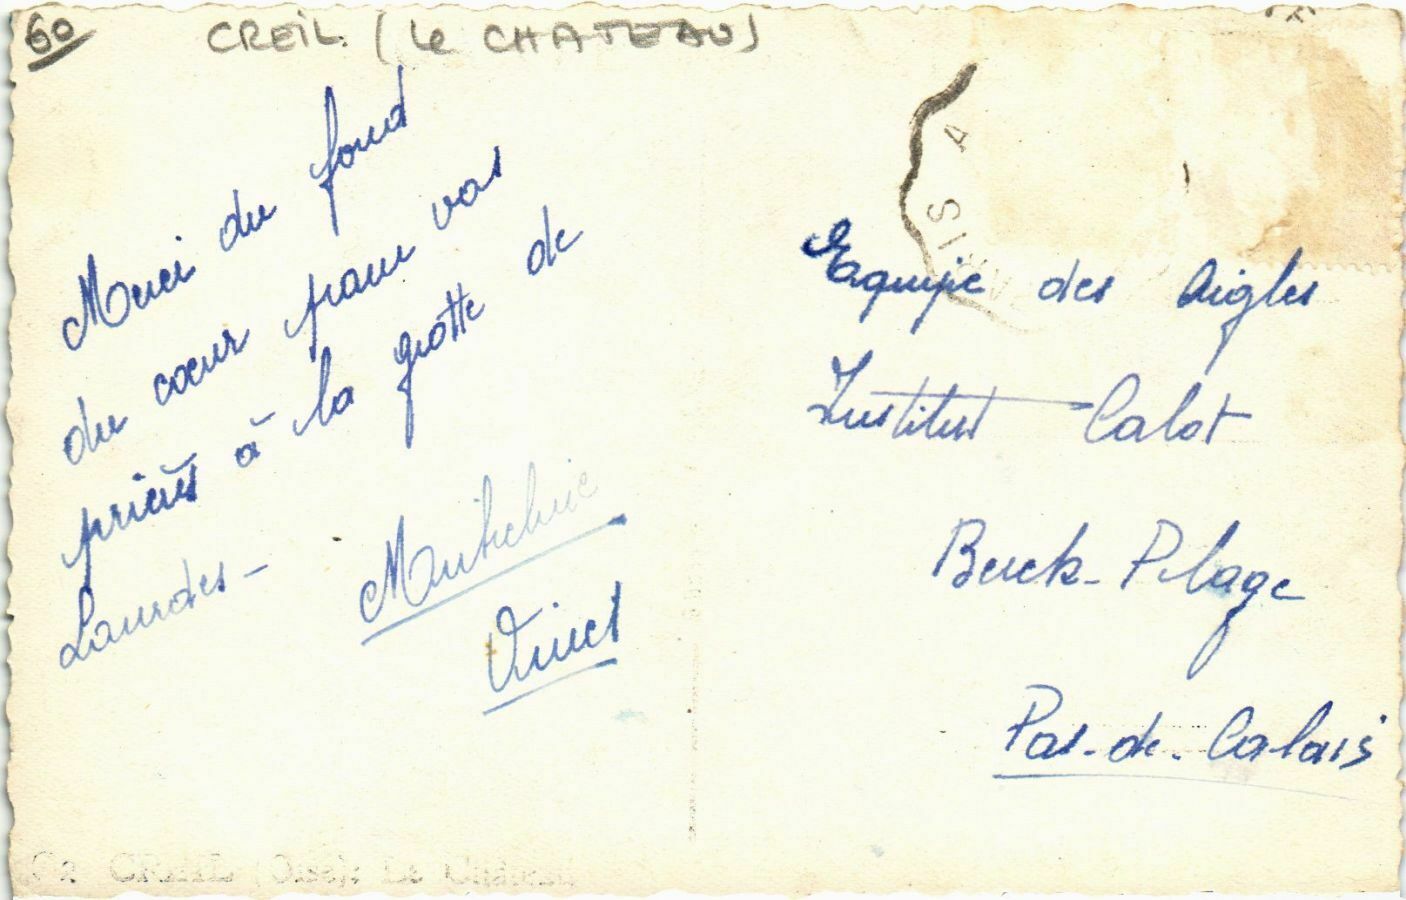 60
CREIL. (Le CHATEAU)
Merci du fond
du cœur pour vos
prières à la grotte de
Lourdes -
Vincs
Equipe des Aigles
Institut Calot
Berck-Plage
Pas-de-Calais
CREIL (Oise): Le Château